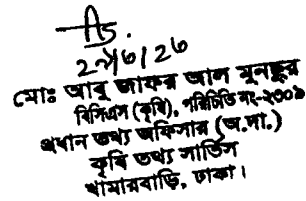 মোঃ আবু জাফর আল মুনছুর
বিসিএস (কৃষি), পরিচিতি নং-২৩০৯
প্রধান তথ্য অফিসার (অ.দা.)
কৃষি তথ্য সার্ভিস
খামারবাড়ি, ঢাকা।